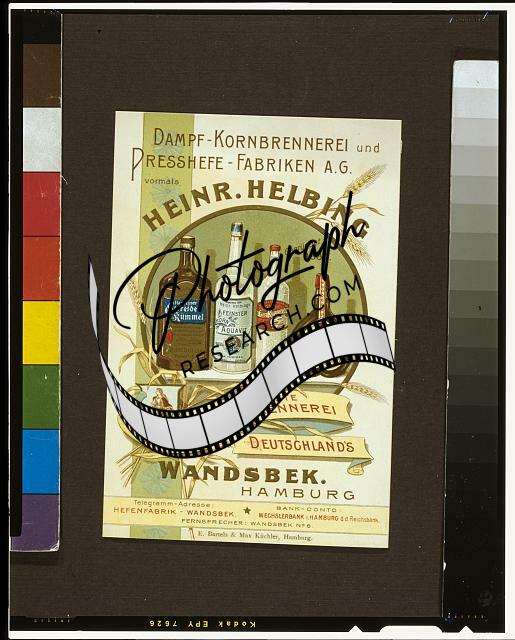 DAMPF-KORNBRENNEREI und
PRESSHEFE-FABRIKEN A.G.
vormals
HEINR. HELBING
Kümmel
FEINSTER
AQUAVIT
Photograph
RESEARCH.COM
BRENNEREI
DEUTSCHLANDS
WANDSBEK.
HAMBURG
Telegramm-Adresse: BANK-CONTO:
HEFENFABRIK - WANDSBEK. ★ WECHSLERBANK i. HAMBURG d.d. Reichsbank.
FERNSPRECHER: WANDSBEK No 6.
E. Bartels & Max Küchler, Hamburg.
Kodak EPY 7626